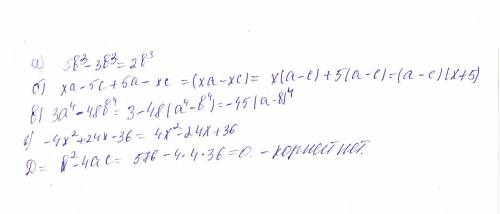 а) 5в³-3в³=2в³
б) xa-5c+5a-xc=(xa-xc)= x(a-c)+5(a-c)=(a-c)(x+5)
в) 3a⁴-48в⁴=3-48(a⁴-в⁴)=-45(a-в)⁴
г) -4x²+24x-36=4x²-24x+36
D=в²-4ac=576-4·4·36=0.-корней нет.